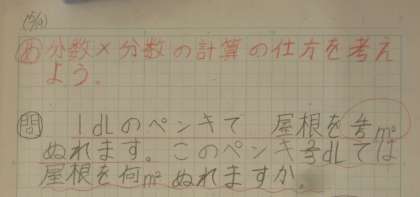 (5/9)
め 分数×分数の計算の仕方を考え
よう。
問 1dLのペンキで 屋根を4/5m²
ぬれます。このペンキ2/3dLでは
屋根を何m²ぬれますか。